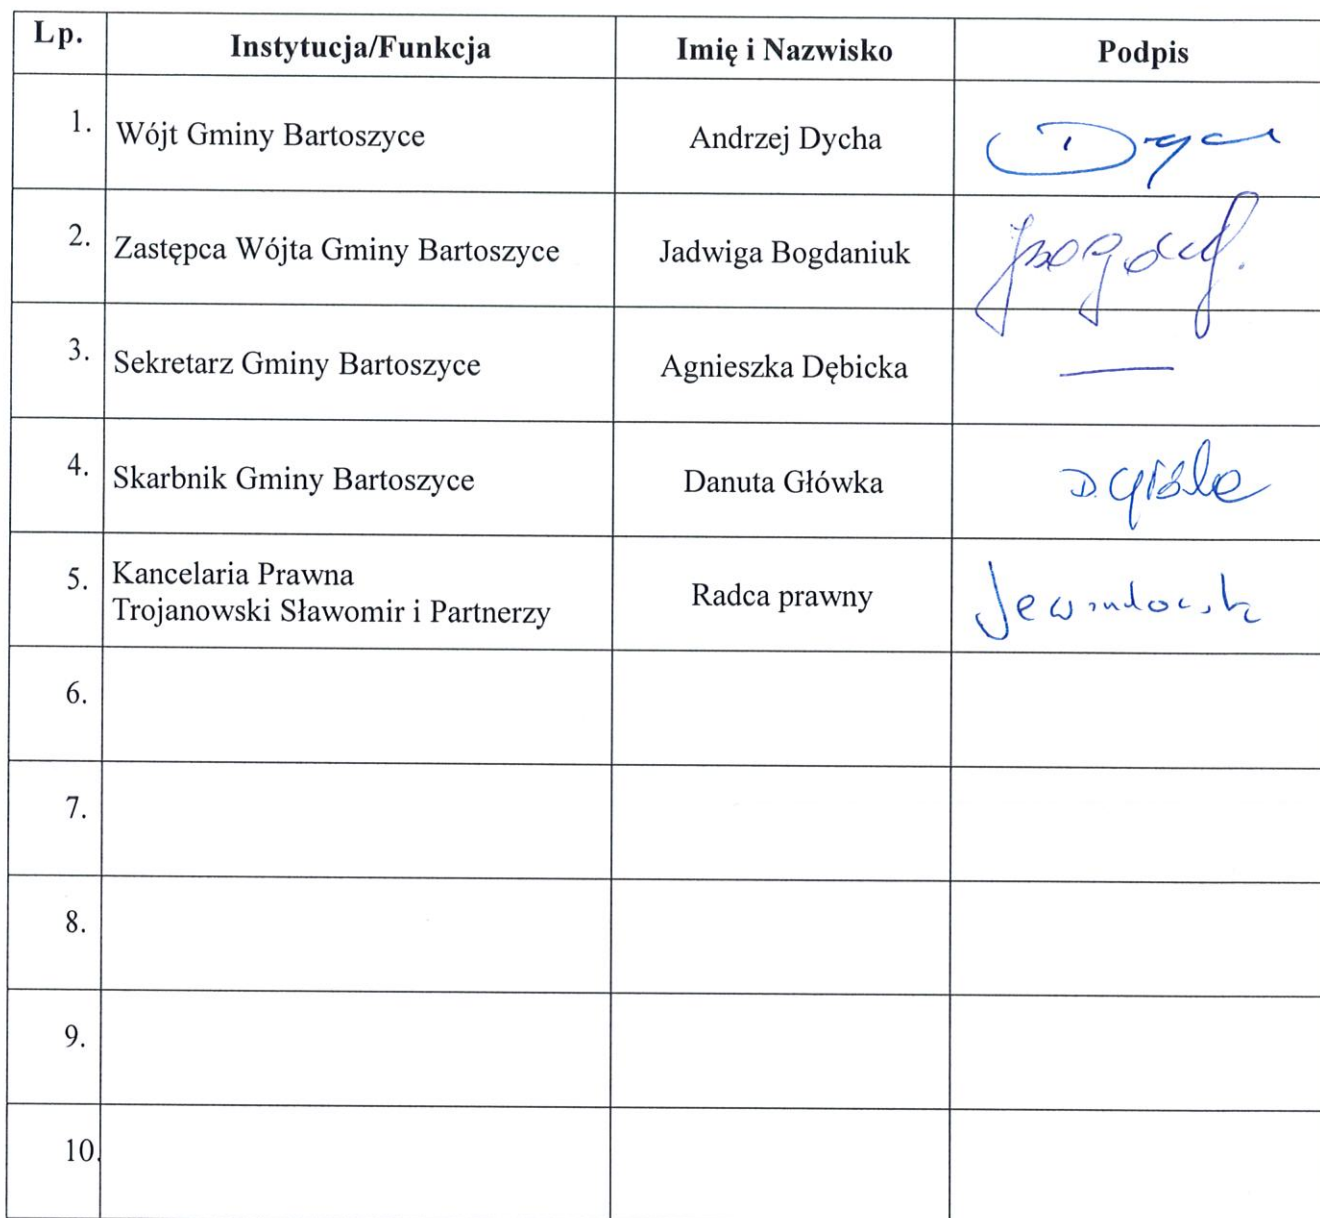 Lp. Instytucja/Funkcja Imię i Nazwisko Podpis
1. Wójt Gminy Bartoszyce Andrzej Dycha
2. Zastępca Wójta Gminy Bartoszyce Jadwiga Bogdaniuk
3. Sekretarz Gminy Bartoszyce Agnieszka Dębicka —
4. Skarbnik Gminy Bartoszyce Danuta Główka
5. Kancelaria Prawna
Trojanowski Sławomir i Partnerzy Radca prawny
6.
7.
8.
9.
10.